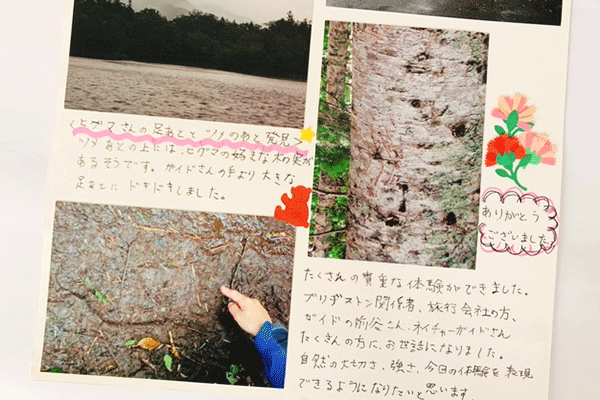 <ヒグマさんの足あとと ツメのあと発見>
ツメあとの上には、ヒグマの好きな木の実が
あるそうです。ガイドさんの手より大きな
足あとに ドキドキしました。
ありがとう
ございました
たくさんの貴重な体験ができました。
ブリヂストン関係者、旅行会社の方、
ガイドの前谷さん、ネイチャーガイドさん
たくさんの方に、お世話になりました。
自然の大切さ、強さ、今回の体験を表現
できるようになりたいと思います